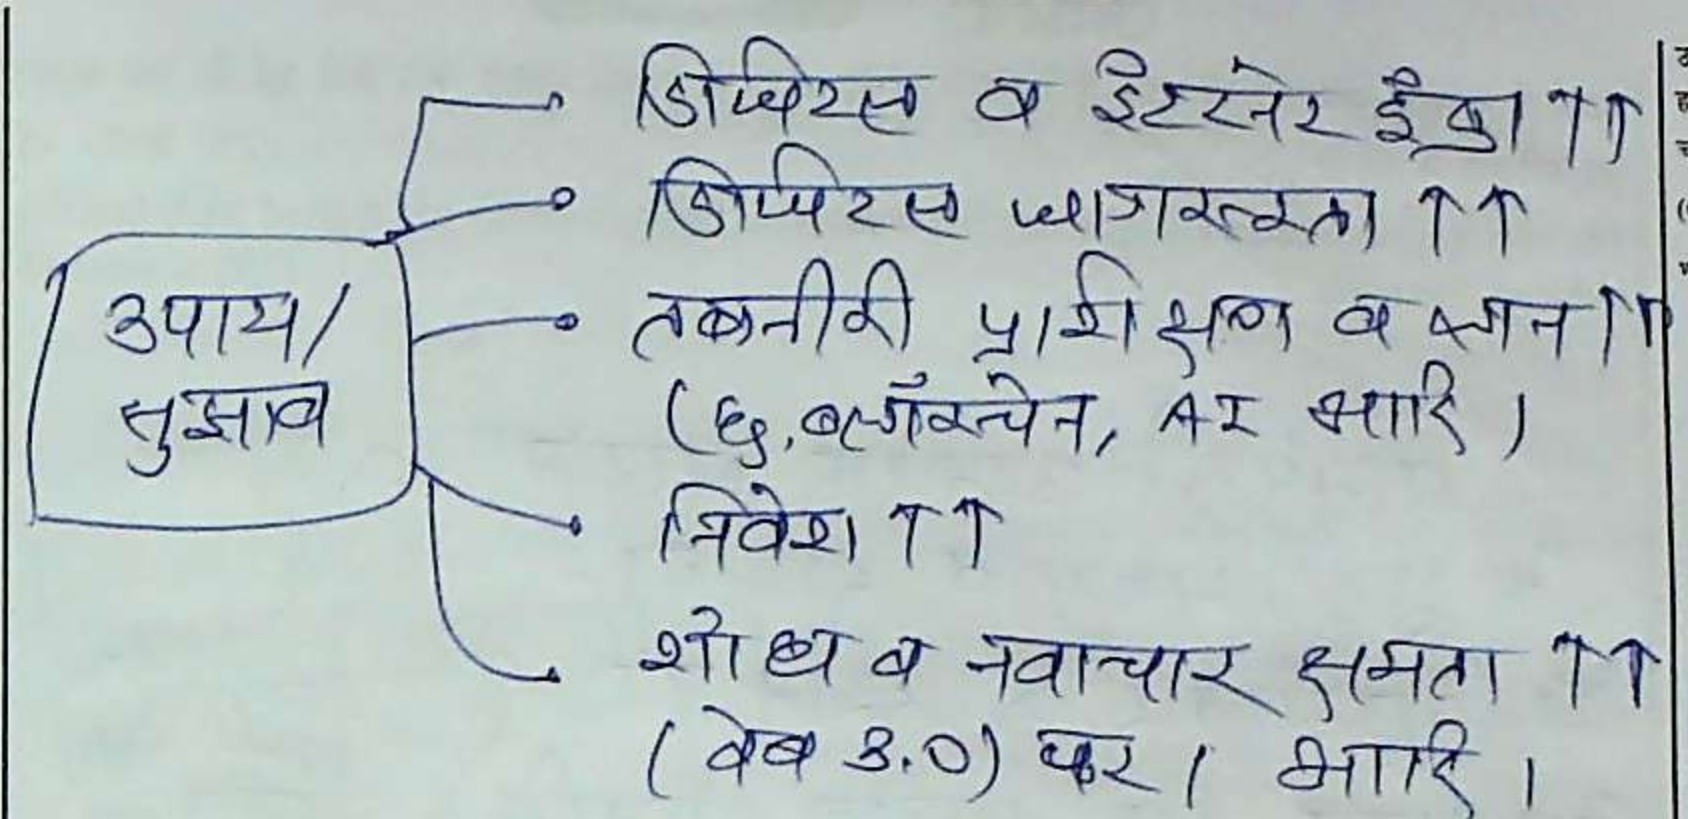 डिजिटल व इंटरनेट ढाँचा ↑↑
डिजिटल जागरूकता ↑↑
उपाय/
सुझाव
तकनीकी प्रशिक्षण व ज्ञान ↑↑
(eg. ब्लॉकचेन, AI आदि)
निवेश ↑↑
शोध व नवाचार क्षमता ↑↑
(वेब 3.0) पर। आदि।